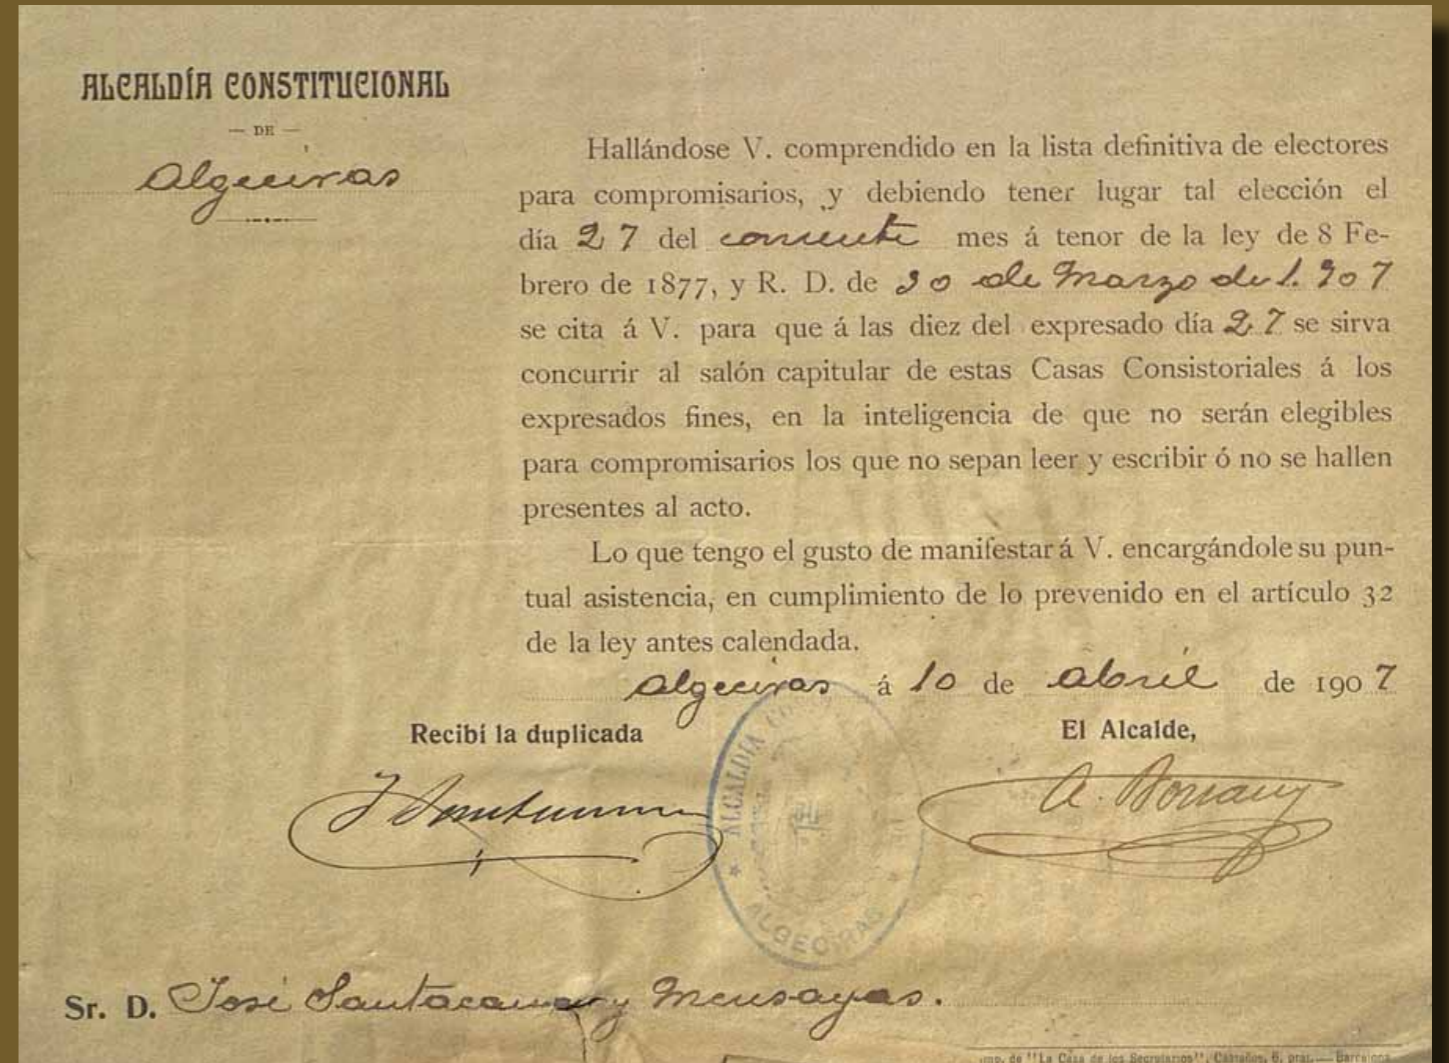 ALCALDÍA CONSTITUCIONAL
— DE —
Algeciras
Hallándose V. comprendido en la lista definitiva de electores
para compromisarios, y debiendo tener lugar tal elección el
día 27 del corriente mes á tenor de la ley de 8 Fe-
brero de 1877, y R. D. de 30 de Marzo de 1.907
se cita á V. para que á las diez del expresado día 27 se sirva
concurrir al salón capitular de estas Casas Consistoriales á los
expresados fines, en la inteligencia de que no serán elegibles
para compromisarios los que no sepan leer y escribir ó no se hallen
presentes al acto.
Lo que tengo el gusto de manifestar á V. encargándole su pun-
tual asistencia, en cumplimiento de lo prevenido en el artículo 32
de la ley antes calendada.
Algeciras á 10 de abril de 1907
Recibí la duplicada
El Alcalde,
ALCALDÍA
ALGECIRAS
Sr. D. José Santacana y Mensayas.
Imp. de "La Casa de los Secretarios", Castaños, 6, pral.—Barcelona